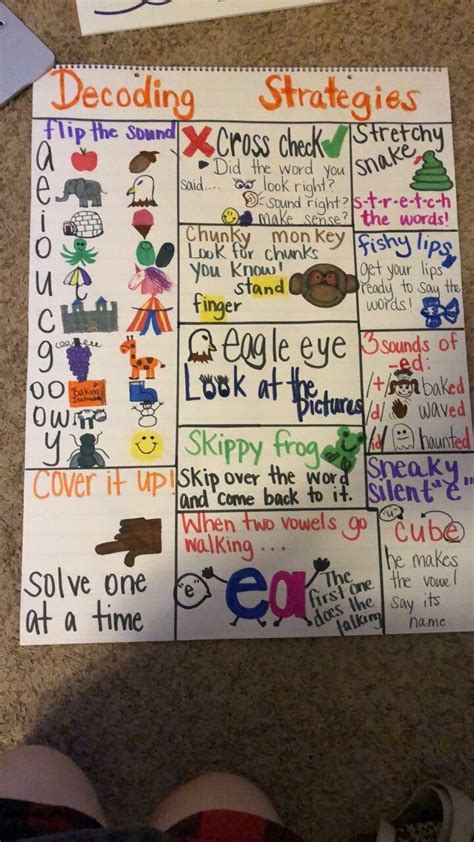 Decoding Strategies
flip the sound
a
e
i
o
u
c
g
oo
ow
y
Cross check
Did the word you
said.... look right?
sound right?
make sense?
Stretchy
snake
s-t-r-e-t-c-h
the words!
Chunky monkey
Look for chunks
you know!
stand
finger
fishy lips
get your lips
ready to say the
words!
eagle eye
Look at the
pictures
3 sounds of
-ed:
/t/ baked
/d/ waved
/id/ haunted
Skippy frog
Skip over the word
and come back to it.
Sneaky
silent "e"
"u"
cube
he makes
the vowel
say its
name
Cover it up!
solve one
at a time
When two vowels go
walking...
"e"
ea
The
first one
does the
talking